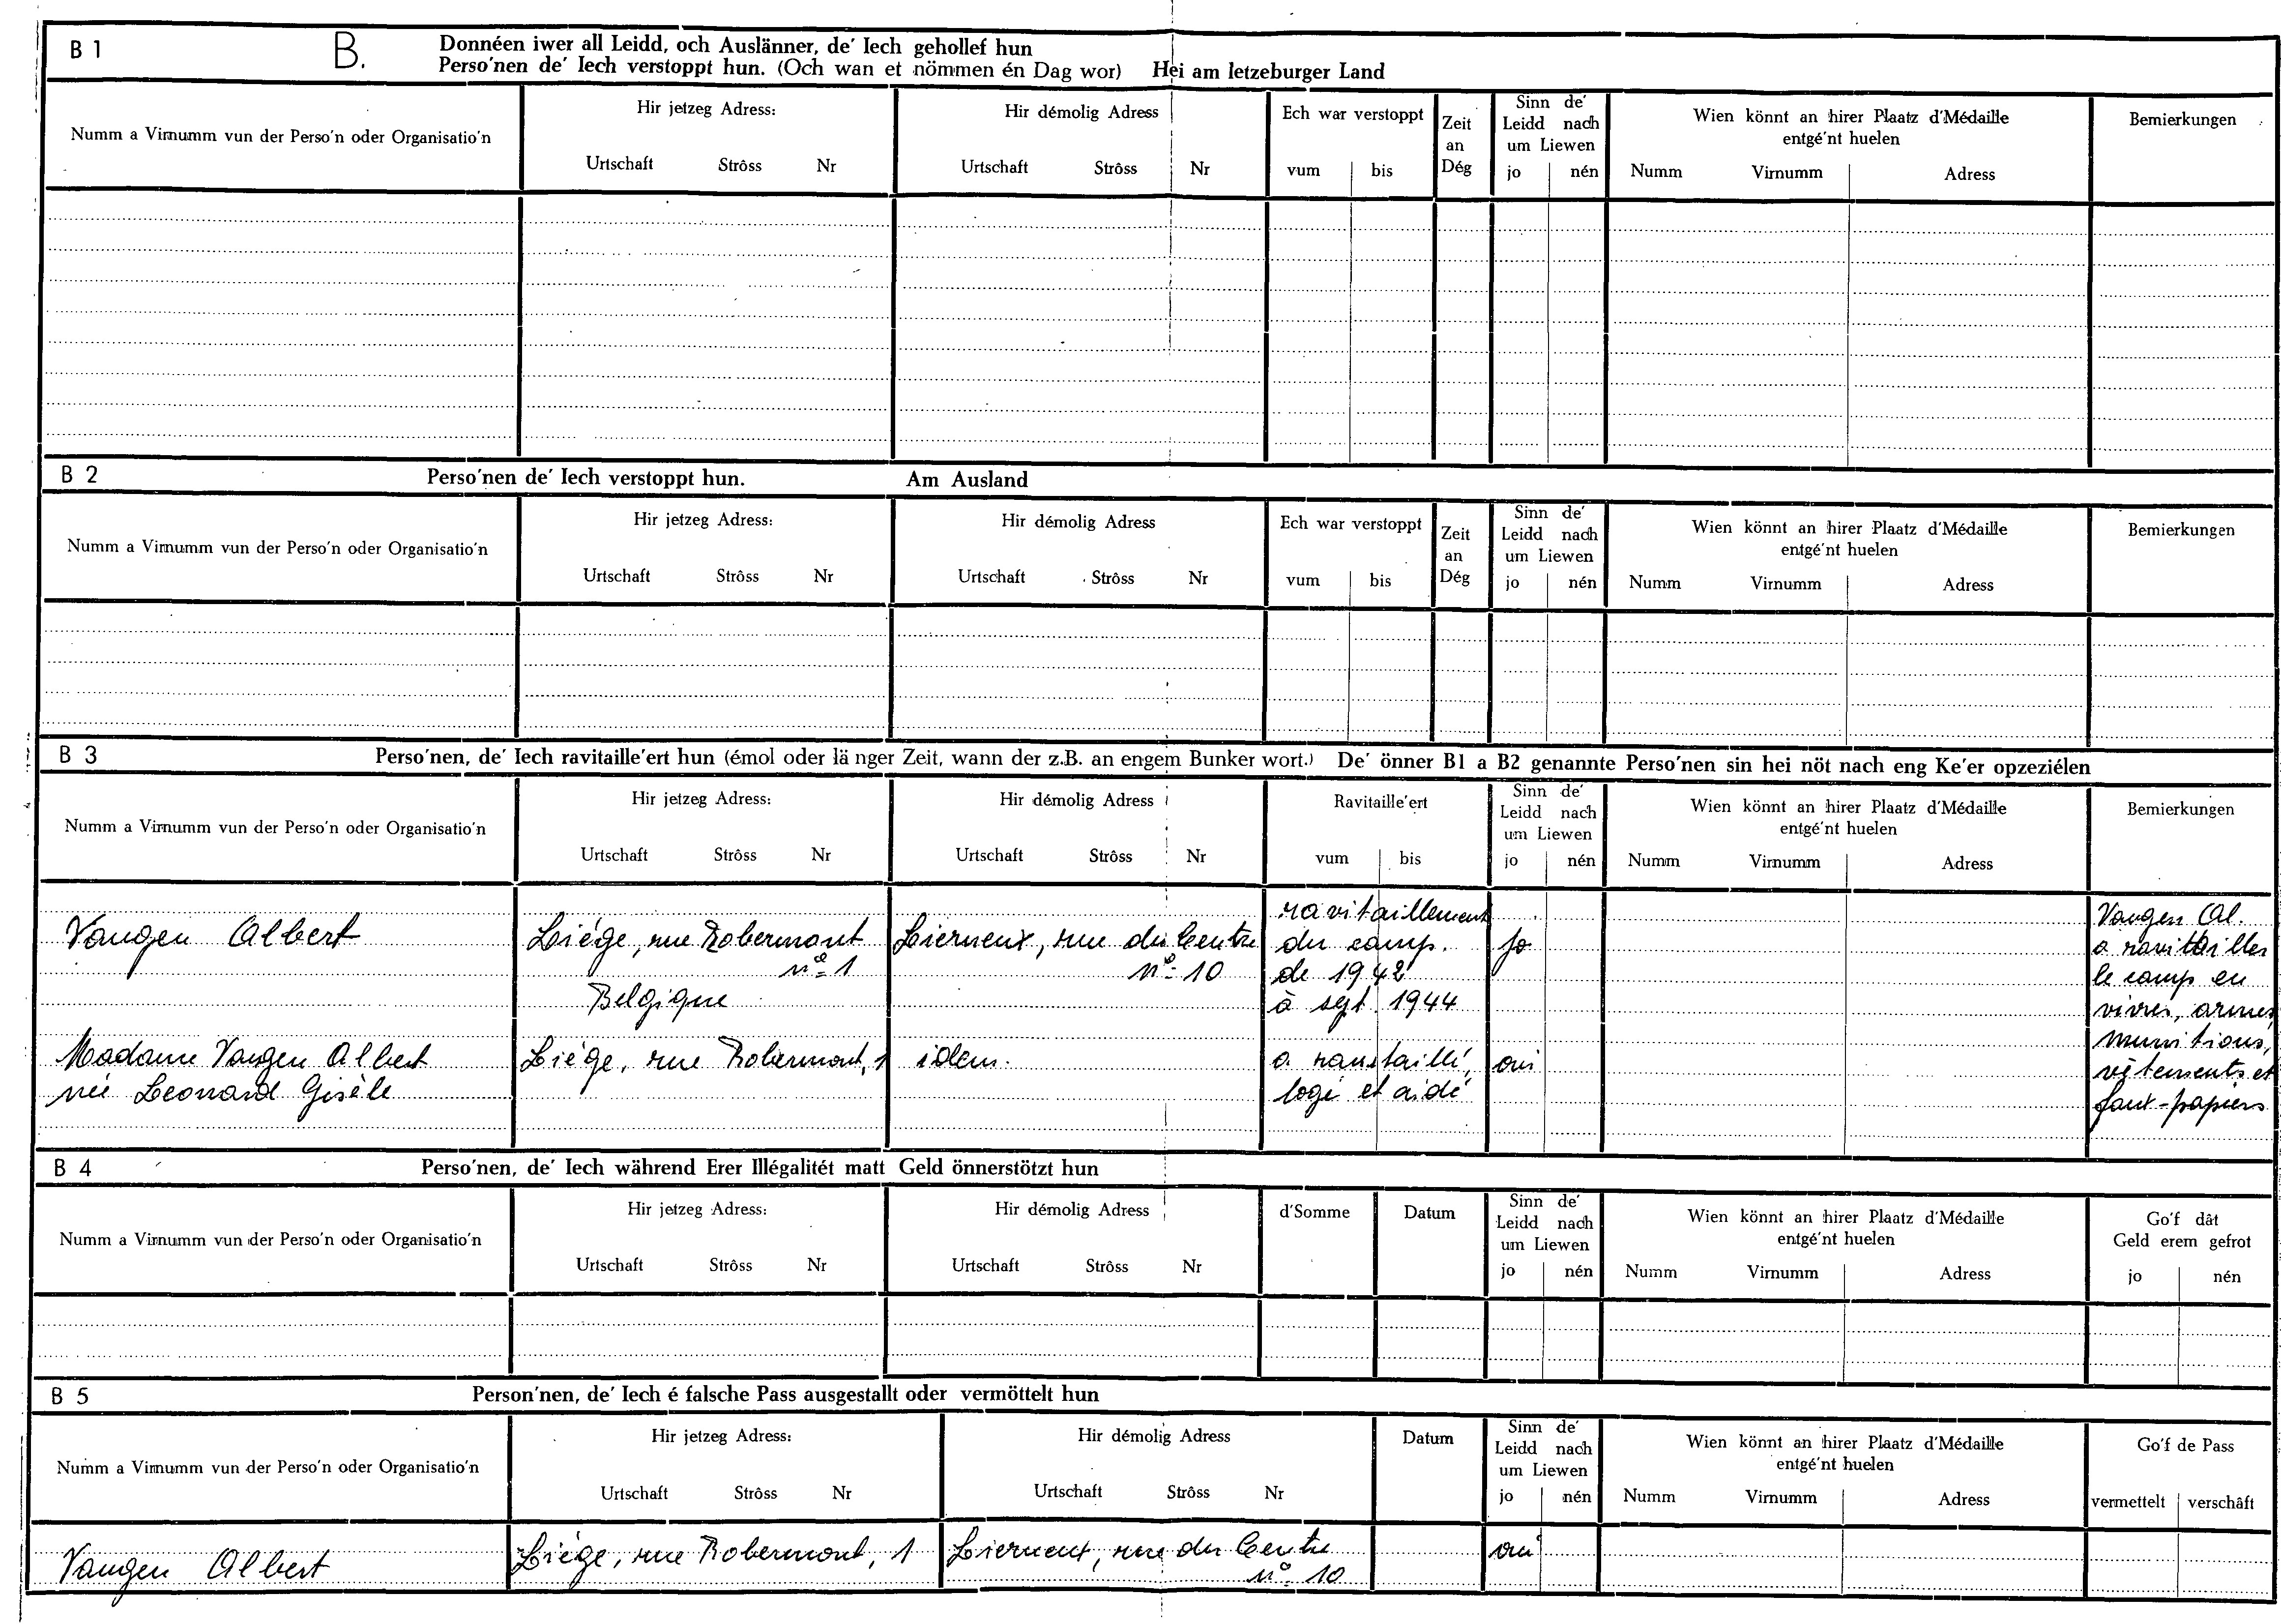 B 1 B. Donnéen iwer all Leidd, och Auslänner, de' Iech gehollef hun
Perso'nen de' Iech verstoppt hun. (Och wan et nömmen én Dag wor) Hei am letzeburger Land
Numm a Virnumm vun der Perso'n oder Organisatio'n
Hir jetzeg Adress:
Urtschaft Strôss Nr
Hir démolig Adress
Urtschaft Strôss Nr
Ech war verstoppt
vum bis
Zeit
an
Dég
Sinn de'
Leidd nach
um Liewen
jo nén
Wien könnt an hirer Plaatz d'Médaille
entgé'nt huelen
Numm Virnumm Adress
Bemierkungen
B 2 Perso'nen de' Iech verstoppt hun. Am Ausland
Numm a Virnumm vun der Perso'n oder Organisatio'n
Hir jetzeg Adress:
Urtschaft Strôss Nr
Hir démolig Adress
Urtschaft Strôss Nr
Ech war verstoppt
vum bis
Zeit
an
Dég
Sinn de'
Leidd nach
um Liewen
jo nén
Wien könnt an hirer Plaatz d'Médaille
entgé'nt huelen
Numm Virnumm Adress
Bemierkungen
B 3 Perso'nen, de' Iech ravitaille'ert hun (émol oder länger Zeit, wann der z.B. an engem Bunker wort.) De' önner B1 a B2 genannte Perso'nen sin hei nöt nach eng Ke'er opzeziélen
Numm a Virnumm vun der Perso'n oder Organisatio'n
Hir jetzeg Adress:
Urtschaft Strôss Nr
Hir démolig Adress
Urtschaft Strôss Nr
Ravitaille'ert
vum bis
Sinn de'
Leidd nach
um Liewen
jo nén
Wien könnt an hirer Plaatz d'Médaille
entgé'nt huelen
Numm Virnumm Adress
Bemierkungen
Vangen Albert
Liége, rue Robermont
nº 1
Belgique
Lierneux, rue du Centre
nº 10
ravitaillement
du camp.
de 1942
à sept. 1944
jo
Vangen Al.
a ravitailler
le camp en
vivres, armes,
munitions,
vêtements et
faux-papiers
Madame Vangen Albert
née Leonard Gisèle
Liége, rue Robermont, 1
idem.
a ravitaillé,
logé et aidé
oui
B 4 Perso'nen, de' Iech während Erer Illégalitét matt Geld önnerstötzt hun
Numm a Virnumm vun der Perso'n oder Organisatio'n
Hir jetzeg Adress:
Urtschaft Strôss Nr
Hir démolig Adress
Urtschaft Strôss Nr
d'Somme
Datum
Sinn de'
Leidd nach
um Liewen
jo nén
Wien könnt an hirer Plaatz d'Médaille
entgé'nt huelen
Numm Virnumm Adress
Go'f dât
Geld erem gefrot
jo nén
B 5 Person'nen, de' Iech é falsche Pass ausgestallt oder vermöttelt hun
Numm a Virnumm vun der Perso'n oder Organisatio'n
Hir jetzeg Adress:
Urtschaft Strôss Nr
Hir démolig Adress
Urtschaft Strôss Nr
Datum
Sinn de'
Leidd nach
um Liewen
jo nén
Wien könnt an hirer Plaatz d'Médaille
entgé'nt huelen
Numm Virnumm Adress
Go'f de Pass
vermettelt verschâft
Vangen Albert
Liége, rue Robermont, 1
Lierneux, rue du Centre
nº 10
oui